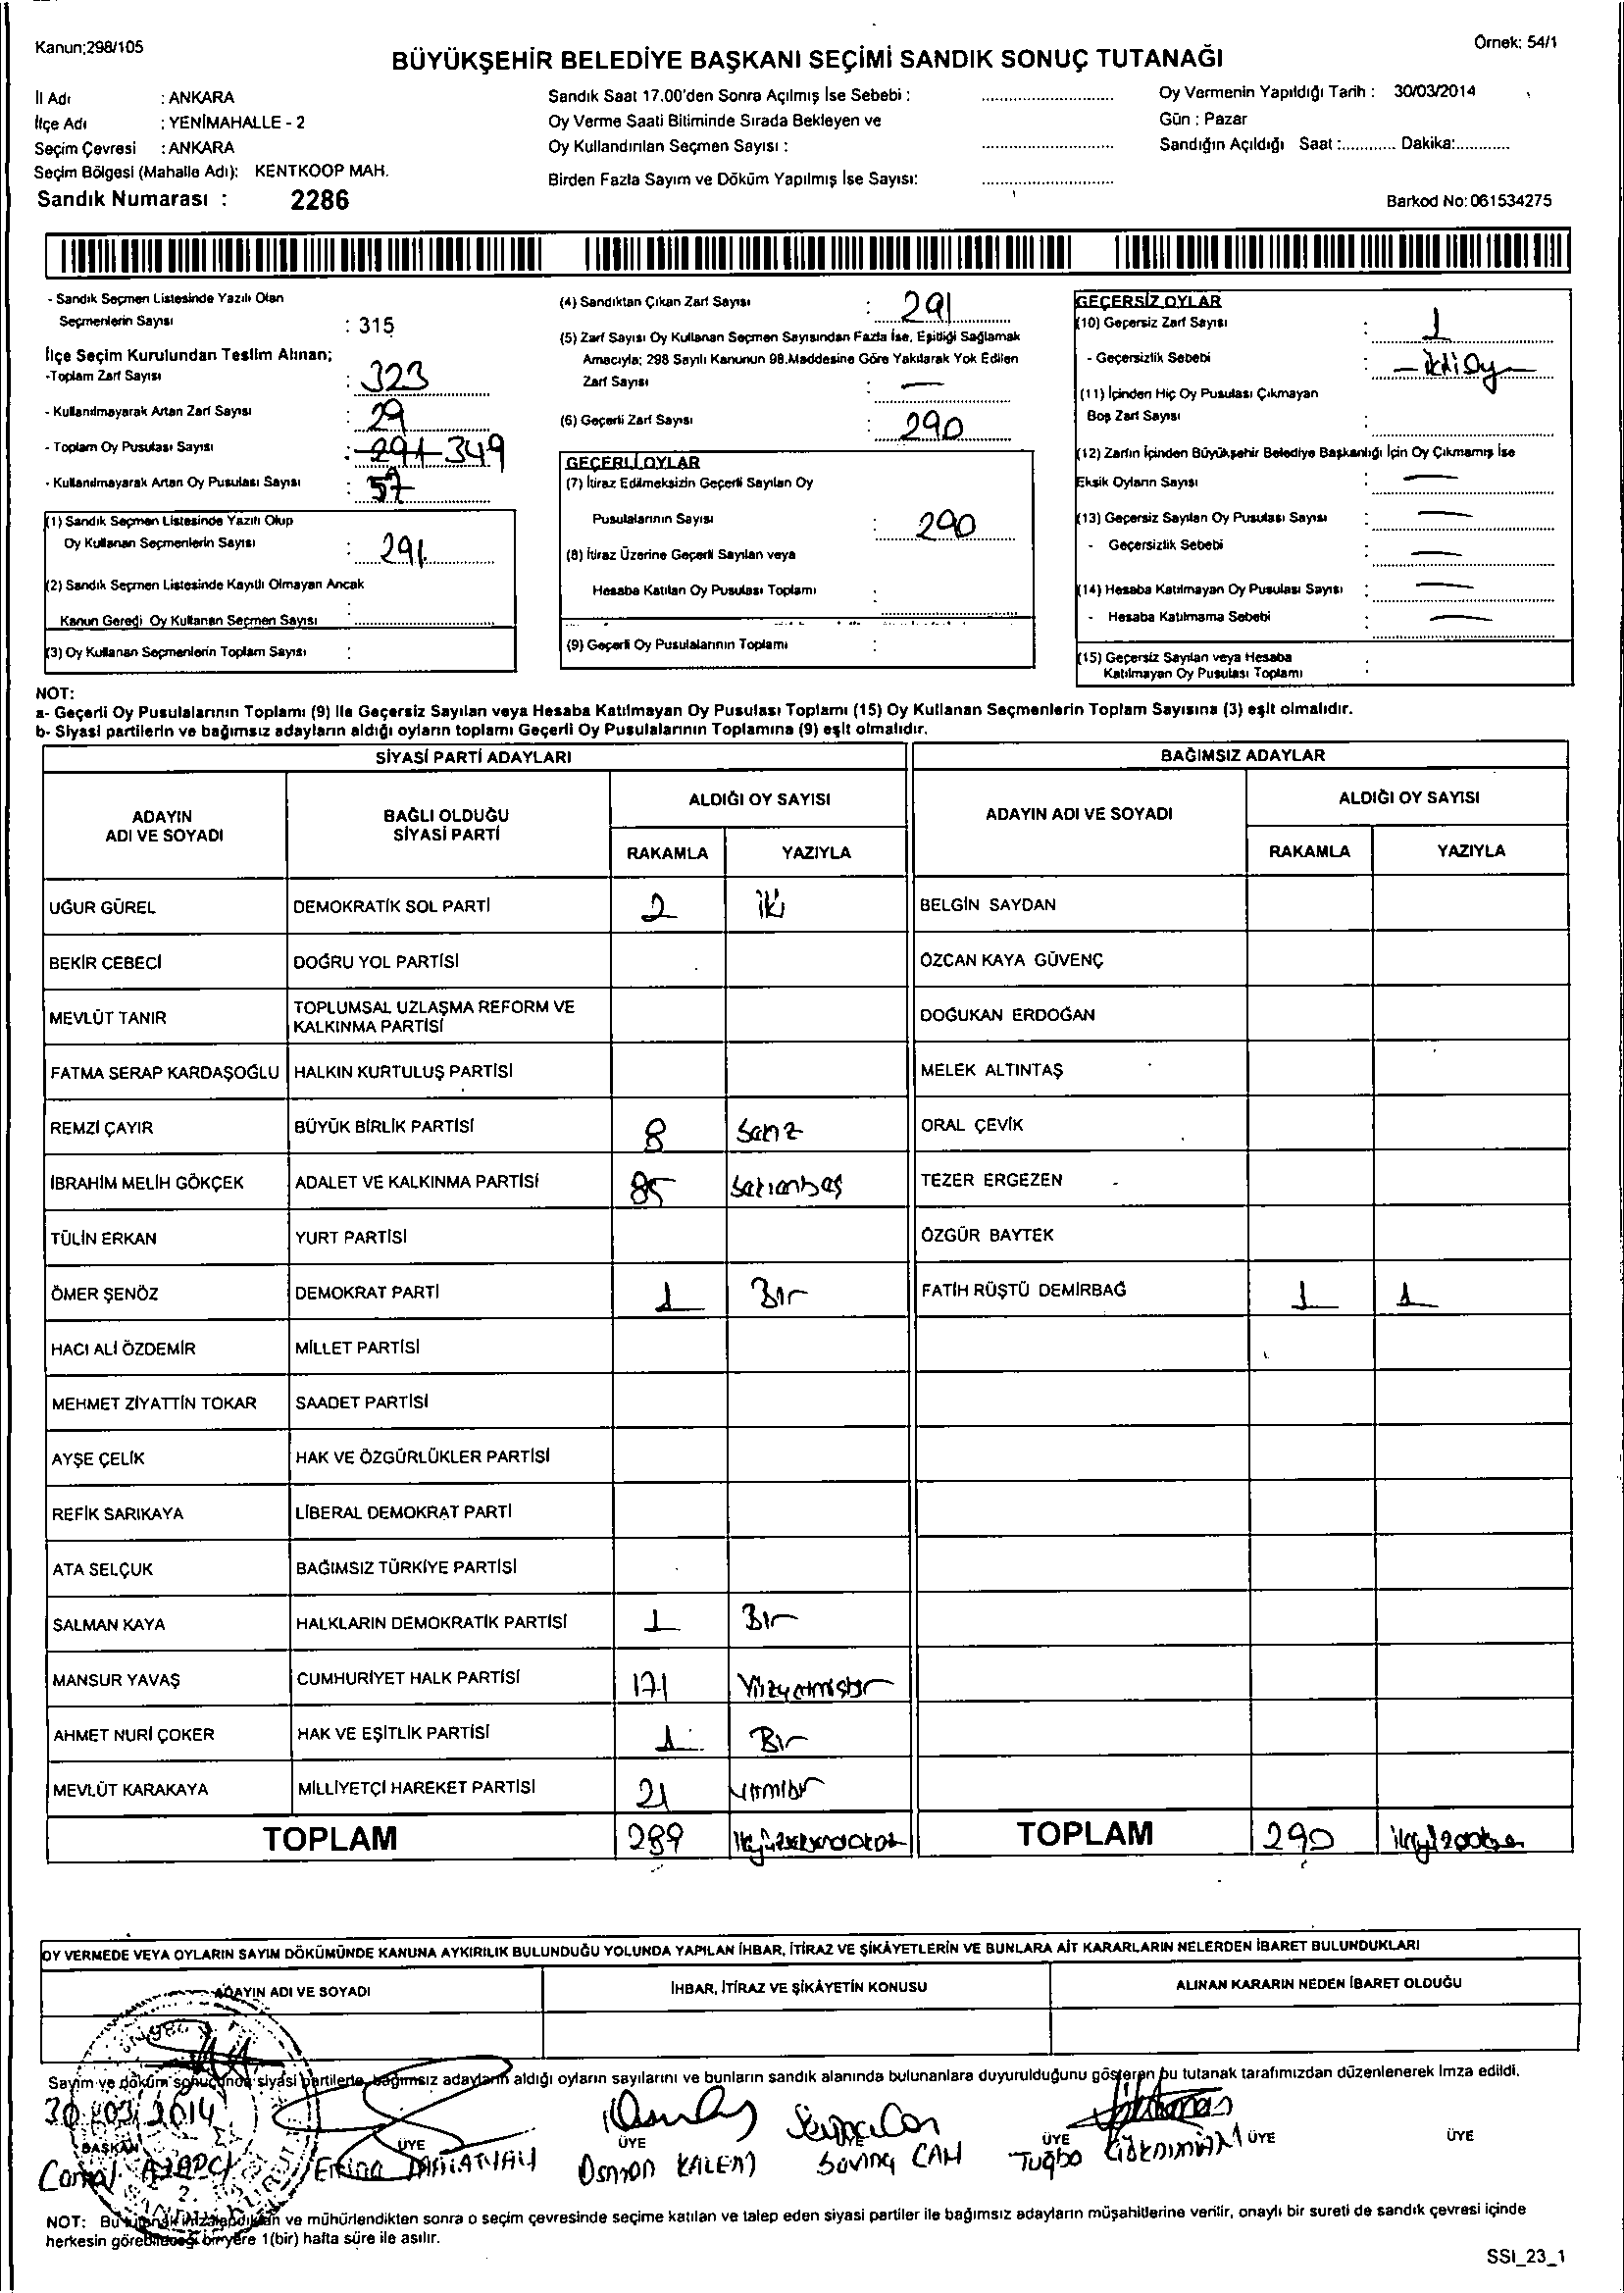 Kanun;298/105
Örnek: 54/1
BÜYÜKŞEHİR BELEDİYE BAŞKANI SEÇİMİ SANDIK SONUÇ TUTANAĞI
İl Adı : ANKARA
İlçe Adı : YENİMAHALLE - 2
Seçim Çevresi : ANKARA
Seçim Bölgesi (Mahalle Adı): KENTKOOP MAH.
Sandık Numarası : 2286
Sandık Saat 17.00'den Sonra Açılmış İse Sebebi :
Oy Verme Saati Bitiminde Sırada Bekleyen ve
Oy Kullandırılan Seçmen Sayısı :
Birden Fazla Sayım ve Döküm Yapılmış İse Sayısı:
Oy Vermenin Yapıldığı Tarih : 30/03/2014
Gün : Pazar
Sandığın Açıldığı Saat :............ Dakika:............
Barkod No: 061534275
- Sandık Seçmen Listesinde Yazılı Olan
Seçmenlerin Sayısı : 315
İlçe Seçim Kurulundan Teslim Alınan;
-Toplam Zarf Sayısı : 323
- Kullanılmayarak Artan Zarf Sayısı : 29
- Toplam Oy Pusulası Sayısı : 349
- Kullanılmayarak Artan Oy Pusulası Sayısı : 57
(1) Sandık Seçmen Listesinde Yazılı Olup
Oy Kullanan Seçmenlerin Sayısı : 291
(2) Sandık Seçmen Listesinde Kayıtlı Olmayan Ancak
Kanun Gereği Oy Kullanan Seçmen Sayısı :
(3) Oy Kullanan Seçmenlerin Toplam Sayısı :
(4) Sandıktan Çıkan Zarf Sayısı : 291
(5) Zarf Sayısı Oy Kullanan Seçmen Sayısından Fazla İse, Eşitliği Sağlamak
Amacıyla; 298 Sayılı Kanunun 98.Maddesine Göre Yakılarak Yok Edilen
Zarf Sayısı : —
(6) Geçerli Zarf Sayısı : 290
GEÇERLİ OYLAR
(7) İtiraz Edilmeksizin Geçerli Sayılan Oy
Pusulalarının Sayısı : 290
(8) İtiraz Üzerine Geçerli Sayılan veya
Hesaba Katılan Oy Pusulası Toplamı :
(9) Geçerli Oy Pusulalarının Toplamı :
GEÇERSİZ OYLAR
(10) Geçersiz Zarf Sayısı : 1
- Geçersizlik Sebebi : - iki Oy -
(11) İçinden Hiç Oy Pusulası Çıkmayan
Boş Zarf Sayısı :
(12) Zarfın İçinden Büyükşehir Belediye Başkanlığı İçin Oy Çıkmamış İse
Eksik Oyların Sayısı : —
(13) Geçersiz Sayılan Oy Pusulası Sayısı : —
- Geçersizlik Sebebi : —
(14) Hesaba Katılmayan Oy Pusulası Sayısı : —
- Hesaba Katılmama Sebebi : —
(15) Geçersiz Sayılan veya Hesaba
Katılmayan Oy Pusulası Toplamı :
NOT:
a- Geçerli Oy Pusulalarının Toplamı (9) ile Geçersiz Sayılan veya Hesaba Katılmayan Oy Pusulası Toplamı (15) Oy Kullanan Seçmenlerin Toplam Sayısına (3) eşit olmalıdır.
b- Siyasi partilerin ve bağımsız adayların aldığı oyların toplamı Geçerli Oy Pusulalarının Toplamına (9) eşit olmalıdır.
SİYASİ PARTİ ADAYLARI BAĞIMSIZ ADAYLAR
ADAYIN ADI VE SOYADI BAĞLI OLDUĞU SİYASİ PARTİ ALDIĞI OY SAYISI RAKAMLA YAZIYLA ADAYIN ADI VE SOYADI ALDIĞI OY SAYISI RAKAMLA YAZIYLA
UĞUR GÜREL DEMOKRATİK SOL PARTİ 2 iki BELGİN SAYDAN
BEKİR CEBECİ DOĞRU YOL PARTİSİ ÖZCAN KAYA GÜVENÇ
MEVLÜT TANIR TOPLUMSAL UZLAŞMA REFORM VE KALKINMA PARTİSİ DOĞUKAN ERDOĞAN
FATMA SERAP KARDAŞOĞLU HALKIN KURTULUŞ PARTİSİ MELEK ALTINTAŞ
REMZİ ÇAYIR BÜYÜK BİRLİK PARTİSİ 8 ORAL ÇEVİK
İBRAHİM MELİH GÖKÇEK ADALET VE KALKINMA PARTİSİ 85 TEZER ERGEZEN
TÜLİN ERKAN YURT PARTİSİ ÖZGÜR BAYTEK
ÖMER ŞENÖZ DEMOKRAT PARTİ 1 Bir FATİH RÜŞTÜ DEMİRBAĞ 1 1
HACI ALİ ÖZDEMİR MİLLET PARTİSİ
MEHMET ZİYATTİN TOKAR SAADET PARTİSİ
AYŞE ÇELİK HAK VE ÖZGÜRLÜKLER PARTİSİ
REFİK SARIKAYA LİBERAL DEMOKRAT PARTİ
ATA SELÇUK BAĞIMSIZ TÜRKİYE PARTİSİ
SALMAN KAYA HALKLARIN DEMOKRATİK PARTİSİ 1 Bir
MANSUR YAVAŞ CUMHURİYET HALK PARTİSİ 171 Yüzyetmişbir
AHMET NURİ ÇOKER HAK VE EŞİTLİK PARTİSİ 1 Bir
MEVLÜT KARAKAYA MİLLİYETÇİ HAREKET PARTİSİ 21 yirmibir
TOPLAM 289 TOPLAM 290
OY VERMEDE VEYA OYLARIN SAYIM DÖKÜMÜNDE KANUNA AYKIRILIK BULUNDUĞU YOLUNDA YAPILAN İHBAR, İTİRAZ VE ŞİKÂYETLERİN VE BUNLARA AİT KARARLARIN NELERDEN İBARET BULUNDUKLARI
ADAYIN ADI VE SOYADI İHBAR, İTİRAZ VE ŞİKÂYETİN KONUSU ALINAN KARARIN NEDEN İBARET OLDUĞU
Sayım ve döküm sonucunda siyasi partilerle, bağımsız adayların aldığı oyların sayılarını ve bunların sandık alanında bulunanlara duyurulduğunu gösteren bu tutanak tarafımızdan düzenlenerek imza edildi.
30/03/2014
BAŞKAN ÜYE ÜYE ÜYE ÜYE ÜYE ÜYE
Osman KALEM Sevinç CAN Tuğba
NOT: Bu tutanak imzalandıktan ve mühürlendikten sonra o seçim çevresinde seçime katılan ve talep eden siyasi partiler ile bağımsız adayların müşahitlerine verilir, onaylı bir sureti de sandık çevresi içinde
herkesin görebileceği bir yere 1(bir) hafta süre ile asılır.
SSI_23_1